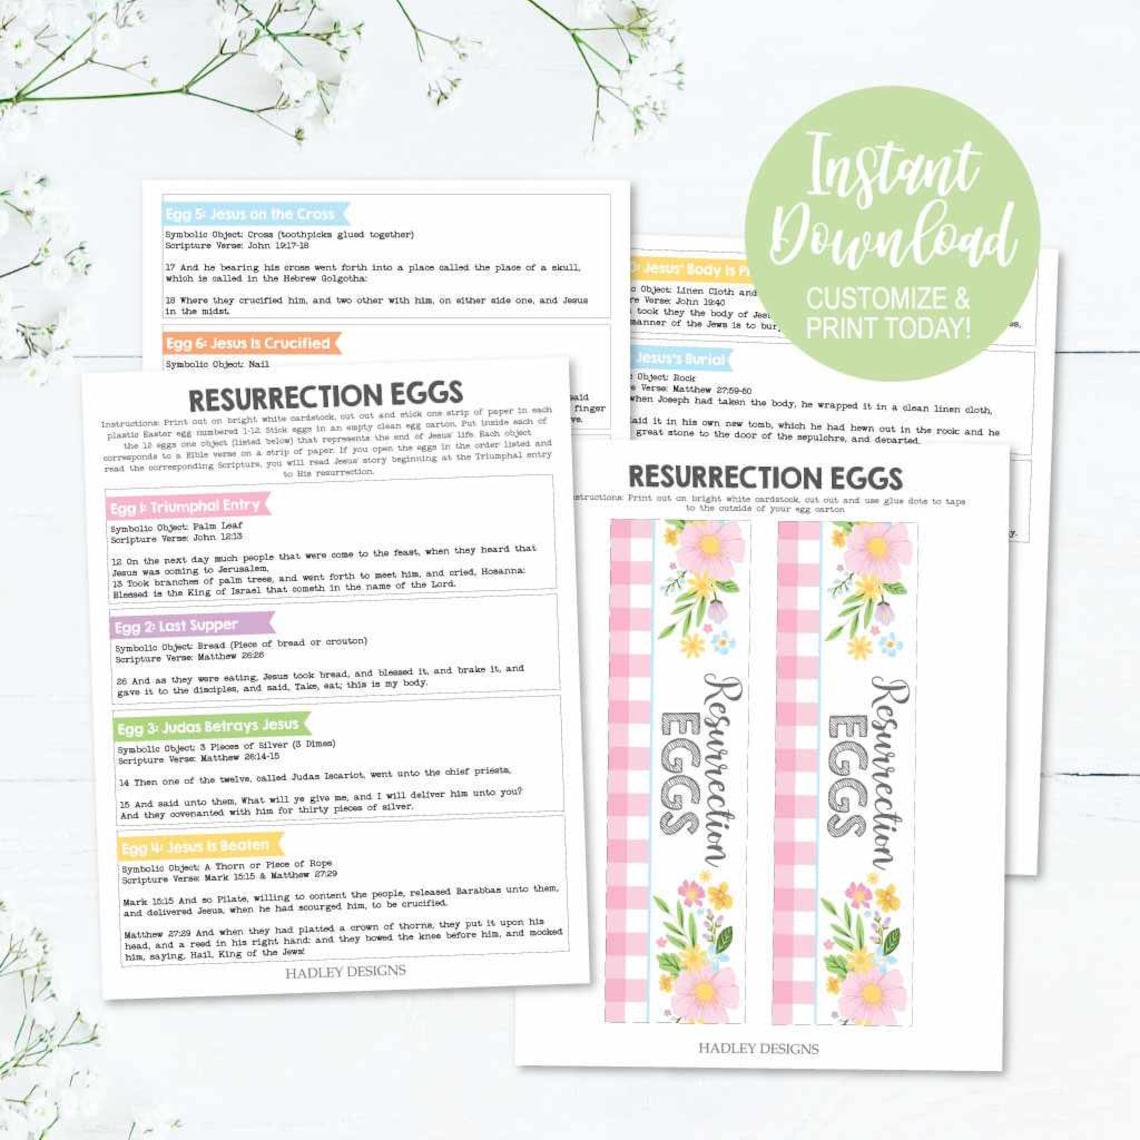 Instant
Download
CUSTOMIZE &
PRINT TODAY!
Egg 5: Jesus on the Cross
Symbolic Object: Cross (toothpicks glued together)
Scripture Verse: John 19:17-18
17 And he bearing his cross went forth into a place called the place of a skull,
which is called in the Hebrew Golgotha:
18 Where they crucified him, and two other with him, on either side one, and Jesus
in the midst.
Egg 6: Jesus Is Crucified
Symbolic Object: Nail
said
finger
ve.
: Jesus' Body Is
c Object: Linen Cloth and
re Verse: John 19:40
took they the body of
manner of the Jews is to
es,
Jesus's Burial
Object: Rock
e Verse: Matthew 27:59-60
when Joseph had taken the body, he wrapped it in a clean linen cloth,
aid it in his own new tomb, which he had hewn out in the rock: and he
great stone to the door of the sepulchre, and departed.
y.
RESURRECTION EGGS
Instructions: Print out on bright white cardstock, cut out and stick one strip of paper in each
plastic Easter egg numbered 1-12. Stick eggs in an empty clean egg carton. Put inside each of
the 12 eggs one object (listed below) that represents the end of Jesus' life. Each object
corresponds to a Bible verse on a strip of paper. If you open the eggs in the order listed and
read the corresponding Scripture, you will read Jesus' story beginning at the Triumphal entry
to His resurrection.
Egg 1: Triumphal Entry
Symbolic Object: Palm Leaf
Scripture Verse: John 12:13
12 On the next day much people that were come to the feast, when they heard that
Jesus was coming to Jerusalem,
13 Took branches of palm trees, and went forth to meet him, and cried, Hosanna:
Blessed is the King of Israel that cometh in the name of the Lord.
Egg 2: Last Supper
Symbolic Object: Bread (Piece of bread or crouton)
Scripture Verse: Matthew 26:26
26 And as they were eating, Jesus took bread, and blessed it, and brake it, and
gave it to the disciples, and said, Take, eat; this is my body.
Egg 3: Judas Betrays Jesus
Symbolic Object: 3 Pieces of Silver (3 Dimes)
Scripture Verse: Matthew 26:14-15
14 Then one of the twelve, called Judas Iscariot, went unto the chief priests,
15 And said unto them, What will ye give me, and I will deliver him unto you?
And they covenanted with him for thirty pieces of silver.
Egg 4: Jesus Is Beaten
Symbolic Object: A Thorn or Piece of Rope
Scripture Verse: Mark 15:15 & Matthew 27:29
Mark 15:15 And so Pilate, willing to content the people, released Barabbas unto them,
and delivered Jesus, when he had scourged him, to be crucified.
Matthew 27:29 And when they had platted a crown of thorns, they put it upon his
head, and a reed in his right hand: and they bowed the knee before him, and mocked
him, saying, Hail, King of the Jews!
HADLEY DESIGNS
RESURRECTION EGGS
structions: Print out on bright white cardstock, cut out and use glue dots to tape
to the outside of your egg carton
Resurrection
EGGS
Resurrection
EGGS
HADLEY DESIGNS